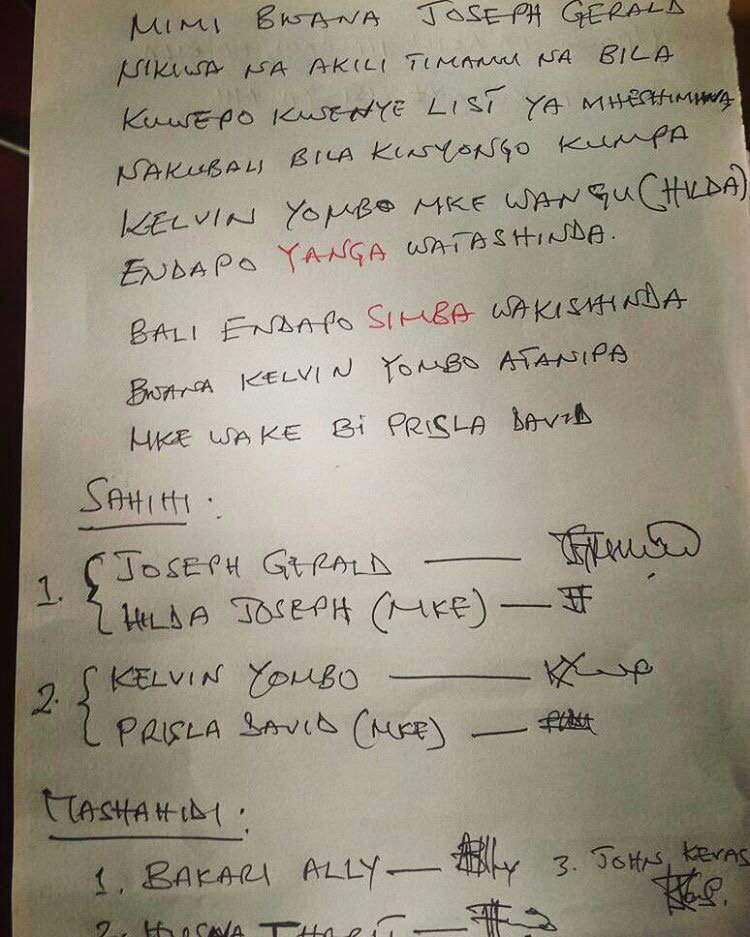 MIMI BWANA JOSEPH GERALD
NIKIWA NA AKILI TIMAMU NA BILA
KUWEPO KWENYE LIST YA MHESHIMIWA
NAKUBALI BILA KINYONGO KUMPA
KELVIN YOMBO MKE WANGU (HILDA)
ENDAPO YANGA WATASHINDA.
BALI ENDAPO SIMBA WAKISHINDA
BWANA KELVIN YOMBO ATANIPA
MKE WAKE BI PRISLA DAVID
SAHIHI:
1. { JOSEPH GERALD —
HILDA JOSEPH (MKE) —
2. { KELVIN YOMBO —
PRISLA DAVID (MKE) —
MASHAHIDI:
1. BAKARI ALLY — 3. JOHN KEVAS
2.